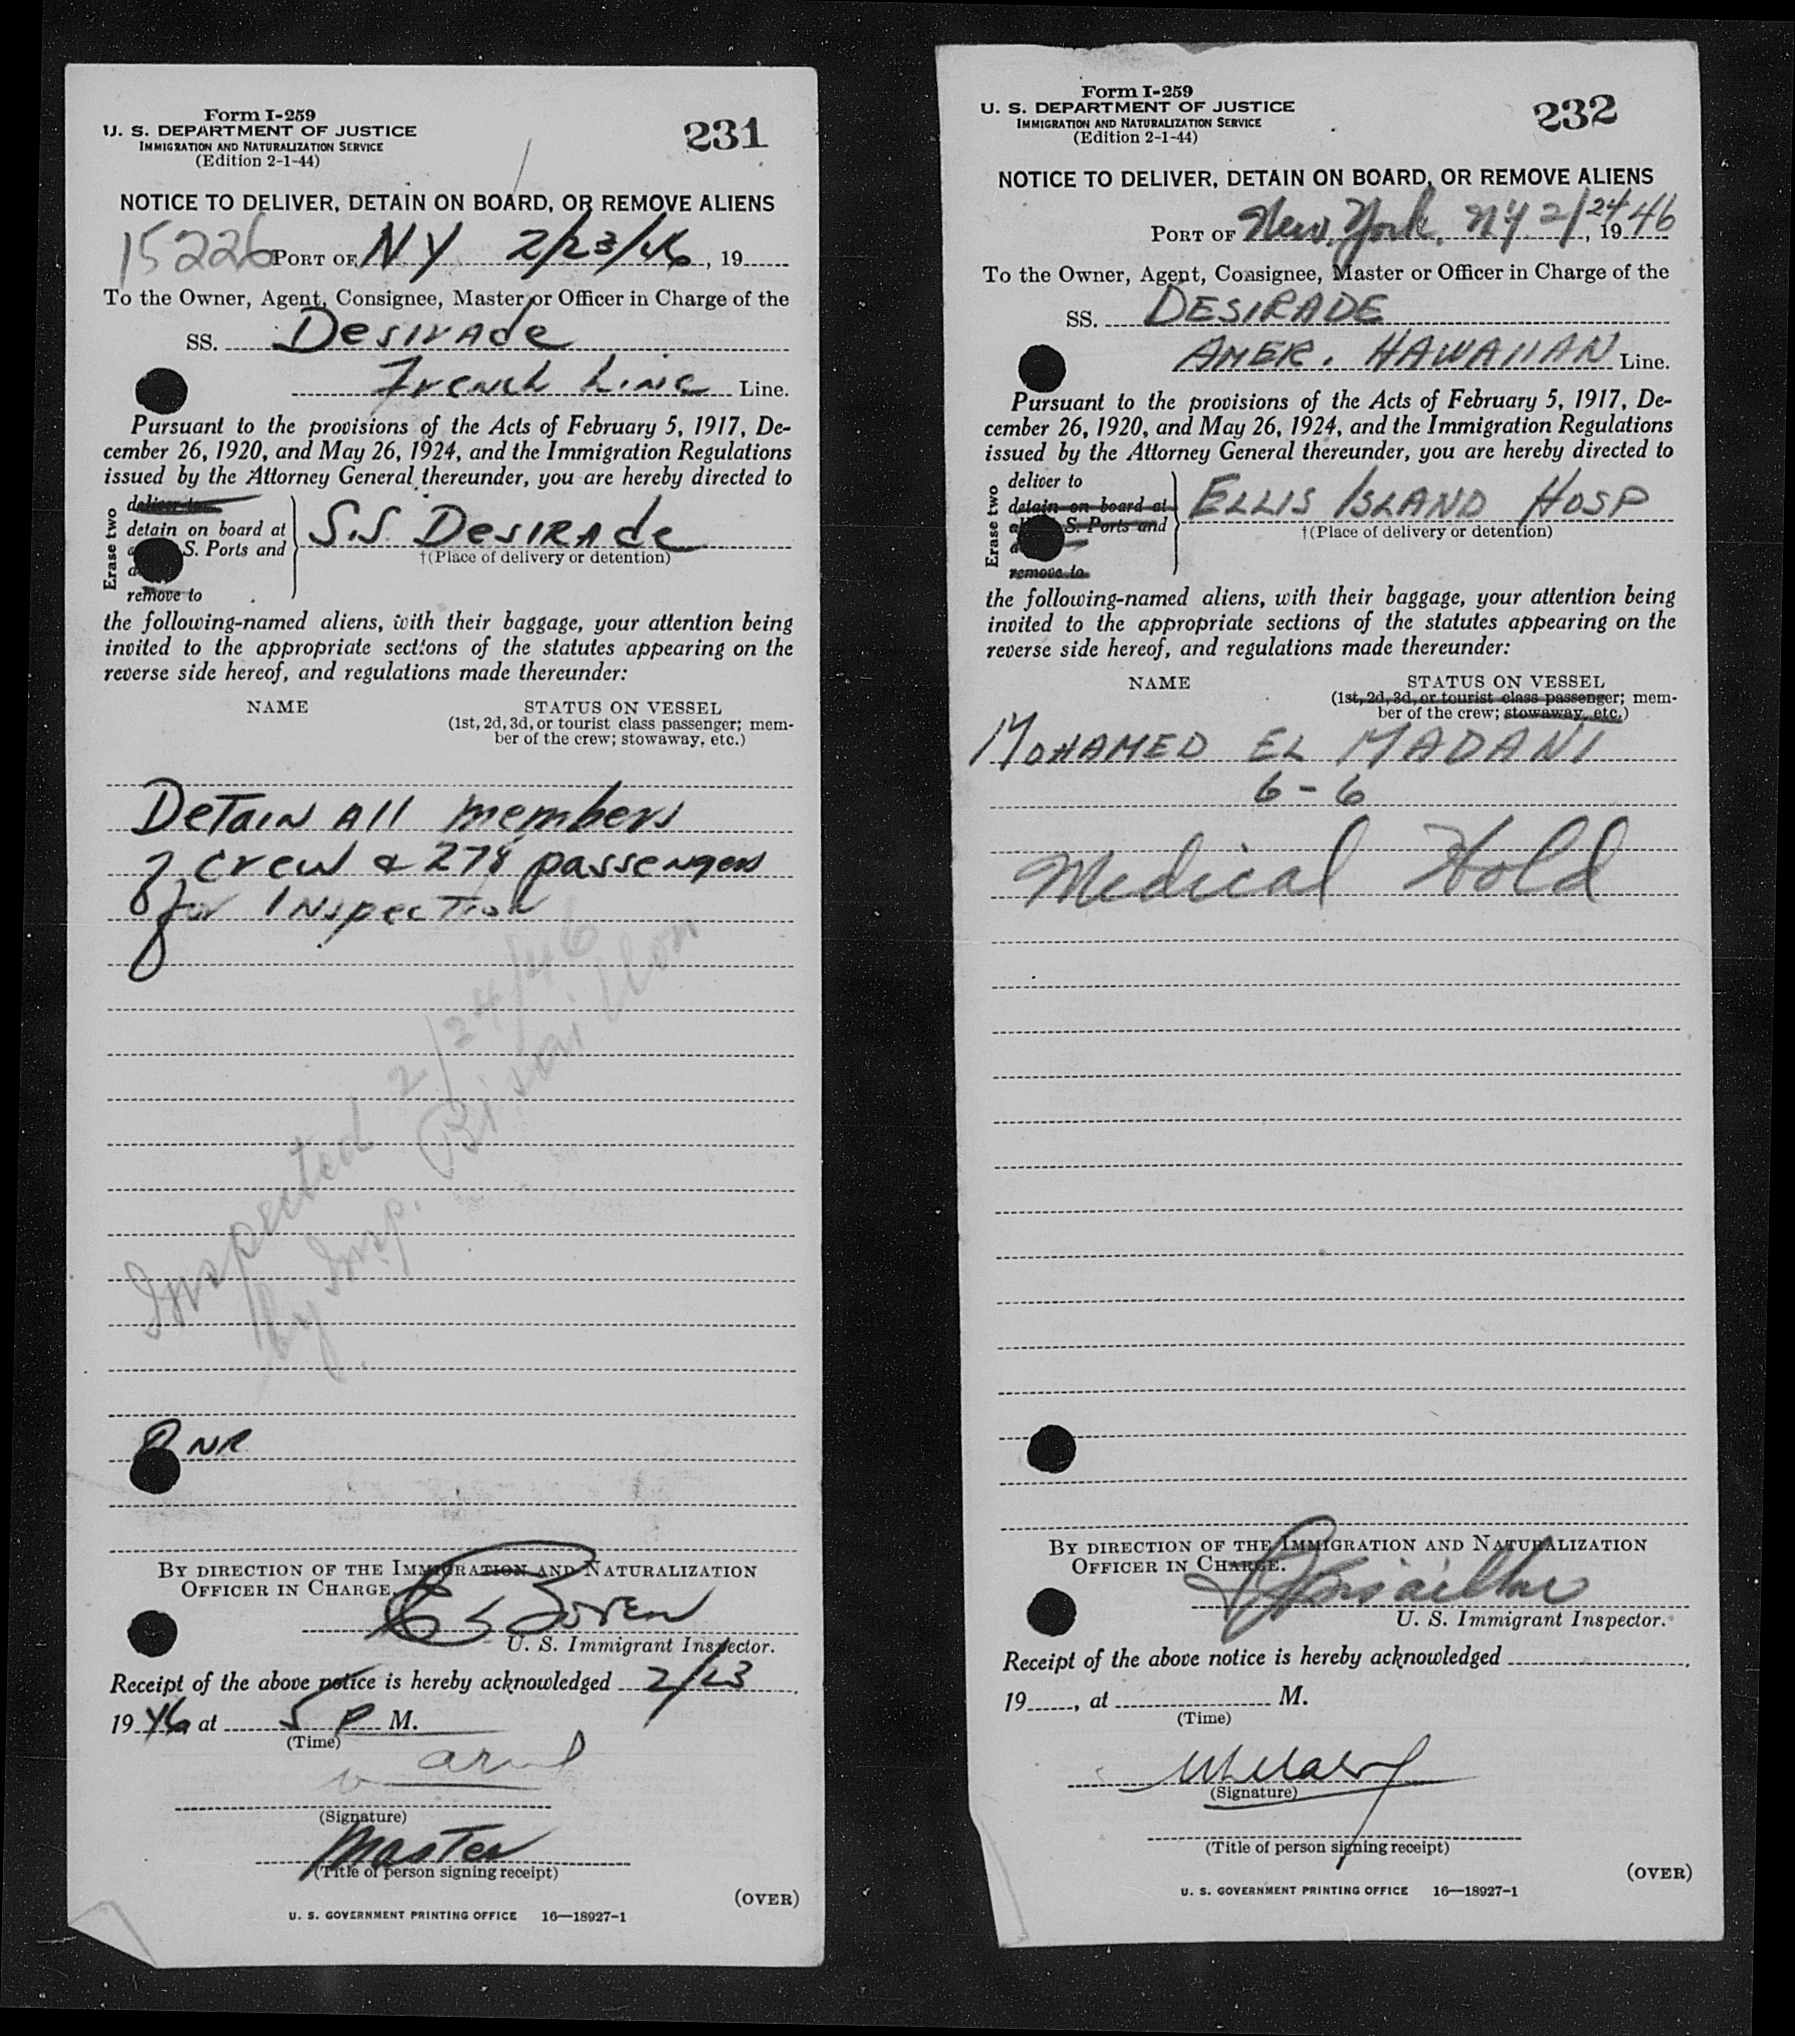 Form I-259
U. S. DEPARTMENT OF JUSTICE
IMMIGRATION AND NATURALIZATION SERVICE
(Edition 2-1-44)
231
NOTICE TO DELIVER, DETAIN ON BOARD, OR REMOVE ALIENS
15226 PORT OF NY 2/23/46, 19
To the Owner, Agent, Consignee, Master or Officer in Charge of the
SS. Desirade
French Line Line.
Pursuant to the provisions of the Acts of February 5, 1917, De-
cember 26, 1920, and May 26, 1924, and the Immigration Regulations
issued by the Attorney General thereunder, you are hereby directed to
Erase two
deliver to
detain on board at
S. Ports and
remove to
S.S. Desirade
†(Place of delivery or detention)
the following-named aliens, with their baggage, your attention being
invited to the appropriate sections of the statutes appearing on the
reverse side hereof, and regulations made thereunder:
NAME
STATUS ON VESSEL
(1st, 2d, 3d, or tourist class passenger; mem-
ber of the crew; stowaway, etc.)
Detain All members
of crew & 278 passengers
for Inspection
Inspected 2/24/46
by Insp. Bisaillon
NR
BY DIRECTION OF THE IMMIGRATION AND NATURALIZATION
OFFICER IN CHARGE.
U. S. Immigrant Inspector.
Receipt of the above notice is hereby acknowledged 2/23
19 46 at 5 P M.
(Time)
(Signature)
Master
(Title of person signing receipt)
(OVER)
U. S. GOVERNMENT PRINTING OFFICE 16—18927-1
Form I-259
U. S. DEPARTMENT OF JUSTICE
IMMIGRATION AND NATURALIZATION SERVICE
(Edition 2-1-44)
232
NOTICE TO DELIVER, DETAIN ON BOARD, OR REMOVE ALIENS
PORT OF New York, NY 2/24, 1946
To the Owner, Agent, Consignee, Master or Officer in Charge of the
SS. DESIRADE
AMER. HAWAIIAN Line.
Pursuant to the provisions of the Acts of February 5, 1917, De-
cember 26, 1920, and May 26, 1924, and the Immigration Regulations
issued by the Attorney General thereunder, you are hereby directed to
Erase two
deliver to
detain on board at
S. Ports and
remove to
ELLIS ISLAND HOSP
†(Place of delivery or detention)
the following-named aliens, with their baggage, your attention being
invited to the appropriate sections of the statutes appearing on the
reverse side hereof, and regulations made thereunder:
NAME
STATUS ON VESSEL
(1st, 2d, 3d, or tourist class passenger; mem-
ber of the crew; stowaway, etc.)
MOHAMED EL MADANI
6-6
Medical Hold
BY DIRECTION OF THE IMMIGRATION AND NATURALIZATION
OFFICER IN CHARGE.
Bisaillon
U. S. Immigrant Inspector.
Receipt of the above notice is hereby acknowledged
19, at M.
(Time)
(Signature)
(Title of person signing receipt)
(OVER)
U. S. GOVERNMENT PRINTING OFFICE 16—18927-1